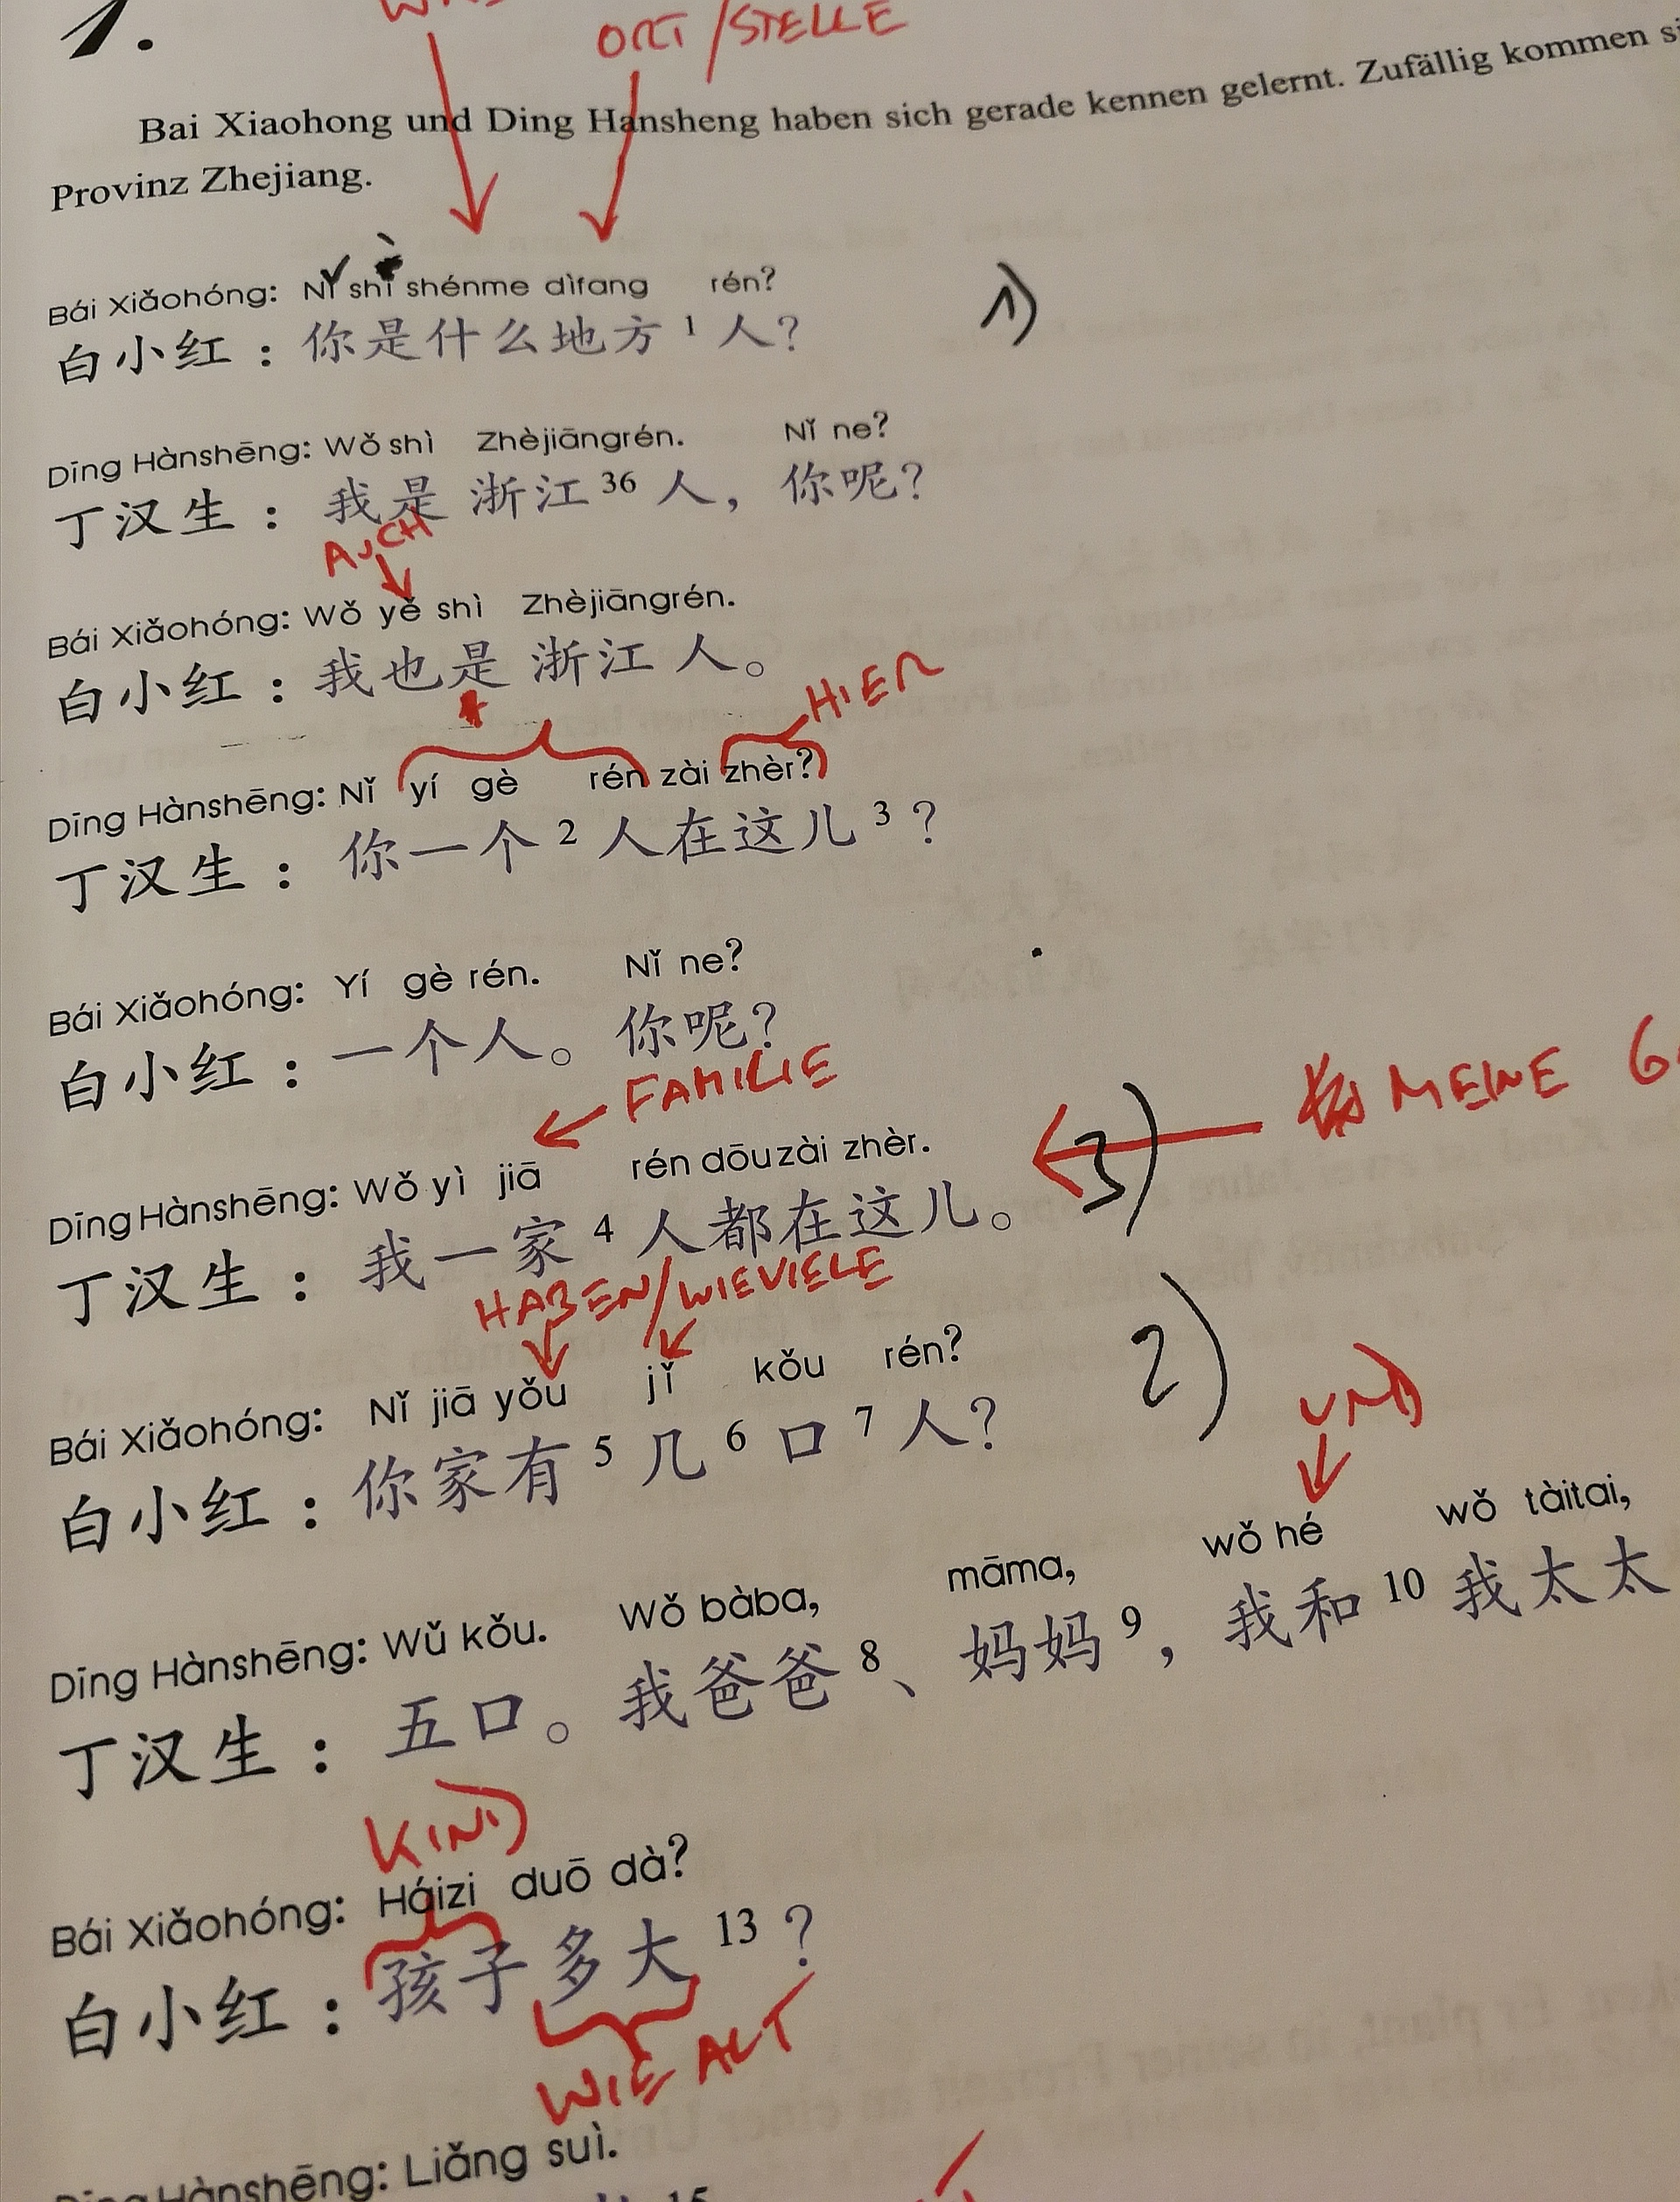 1.
ORT/STELLE
Bai Xiaohong und Ding Hansheng haben sich gerade kennen gelernt. Zufällig kommen
Provinz Zhejiang.
Bái Xiǎohóng: Nǐ shì shénme dìfang rén?
白小红：你是什么地方 1 人？ 1)
Dīng Hànshēng: Wǒ shì Zhèjiāngrén. Nǐ ne?
丁汉生：我是浙江 36 人，你呢？
AUCH
Bái Xiǎohóng: Wǒ yě shì Zhèjiāngrén.
白小红：我也是浙江人。
HIER
Dīng Hànshēng: Nǐ yí gè rén zài zhèr?
丁汉生：你一个 2 人在这儿 3 ？
Bái Xiǎohóng: Yí gè rén. Nǐ ne?
白小红：一个人。你呢？
FAMILIE
MEINE
Dīng Hànshēng: Wǒ yì jiā rén dōu zài zhèr. 3)
丁汉生：我一家 4 人都在这儿。
HABEN/WIEVIELE
Bái Xiǎohóng: Nǐ jiā yǒu jǐ kǒu rén? 2)
白小红：你家有 5 几 6 口 7 人？
UND
Dīng Hànshēng: Wǔ kǒu. Wǒ bàba, māma, wǒ hé wǒ tàitai,
丁汉生：五口。我爸爸 8 、妈妈 9 ，我和 10 我太太
KIND
Bái Xiǎohóng: Háizi duō dà?
白小红：孩子多大 13 ？
WIE ALT
Dīng Hànshēng: Liǎng suì.
15